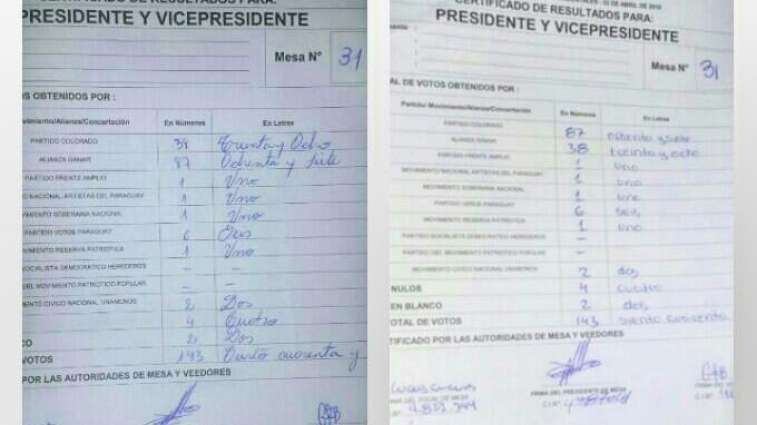 CERTIFICADO DE RESULTADOS PARA:
PRESIDENTE Y VICEPRESIDENTE
Mesa N° 31
OS OBTENIDOS POR :
ovimiento/Alianza/Concertación En Números En Letras
PARTIDO COLORADO 38 Treinta y Ocho
ALIANZA GANAR 87 Ochenta y Siete
PARTIDO FRENTE AMPLIO 1 Uno
NACIONAL ARTISTAS DEL PARAGUAY 1 Uno
MOVIMIENTO SOBERANIA NACIONAL 1 Uno
PARTIDO VERDE PARAGUAY 6 Seis
MOVIMIENTO RESERVA PATRIOTICA 1 Uno
SOCIALISTA DEMOCRATICO HEREDEROS - -
DEL MOVIMIENTO PATRIOTICO POPULAR - -
MIENTO CIVICO NACIONAL UNAMONOS 2 Dos
4 Cuatro
CO 2 Dos
VOTOS 143 cuarenta y
POR LAS AUTORIDADES DE MESA Y VEEDORES
22 DE ABRIL DE 2018
CERTIFICADO DE RESULTADOS PARA:
PRESIDENTE Y VICEPRESIDENTE
Mesa N° 31
AL DE VOTOS OBTENIDOS POR :
Partido/Movimiento/Alianza/Concertación En Números En Letras
PARTIDO COLORADO 87 ochenta y siete
ALIANZA GANAR 38 treinta y ocho
PARTIDO FRENTE AMPLIO 1 uno
MOVIMIENTO NACIONAL ARTISTAS DEL PARAGUAY 1 uno
MOVIMIENTO SOBERANIA NACIONAL 1 uno
PARTIDO VERDE PARAGUAY 6 seis
MOVIMIENTO RESERVA PATRIOTICA 1 uno
PARTIDO SOCIALISTA DEMOCRATICO HEREDEROS -
PARTIDO DEL MOVIMIENTO PATRIOTICO POPULAR -
MOVIMIENTO CIVICO NACIONAL UNAMONOS 2 dos
NULOS 4 cuatro
EN BLANCO 2 dos
TOTAL DE VOTOS 143 ciento cuarenta
TIFICADO POR LAS AUTORIDADES DE MESA Y VEEDORES
FIRMA DEL VOCAL DE MESA FIRMA DEL PRESIDENTE DE MESA FIRMA DEL VOCAL